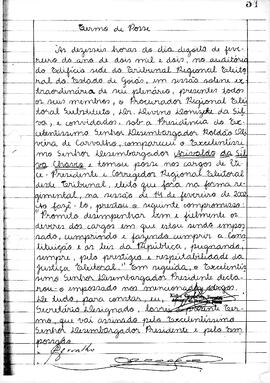 51
Termo de Posse
Às dezesseis horas do dia dezoito de feve-
reiro do ano de dois mil e dois, no auditório
do Edifício sede do Tribunal Regional Eleitoral
do Estado de Goiás, em sessão solene ex-
traordinária de seu plenário, presentes todos
os seus membros, o Procurador Regional Eleitoral
Substituto, Dr. Divino Donizete da Sil-
va, e convidados, sob a Presidência do Ex-
celentíssimo Senhor Desembargador Roldão Oli-
veira de Carvalho, compareceu o Excelentíssi-
mo Senhor Desembargador da Sil-
va Chaves e tomou posse nos cargos de Vice-
Presidente e Corregedor Regional Eleitoral
deste Tribunal, eleito que fora na forma re-
gimental, na sessão do dia 14 de fevereiro de 2002.
Ao fazê-lo, prestou o seguinte compromisso:
"Prometo desempenhar bem e fielmente os
deveres dos cargos em que estou sendo empos-
sado, cumprindo e fazendo cumprir a Cons-
tituição e as leis da República, pugnando,
sempre, pelo prestígio e respeitabilidade da
Justiça Eleitoral." Em seguida, o Excelentís-
simo Senhor Desembargador Presidente decla-
rou-o empossado nos mencionados cargos.
De tudo, para constar, eu,
Secretário Designado, lavrei o presente Ter-
mo, que vai assinado pelo Excelentíssimo
Senhor Desembargador Presidente e pelo Em-
possado.